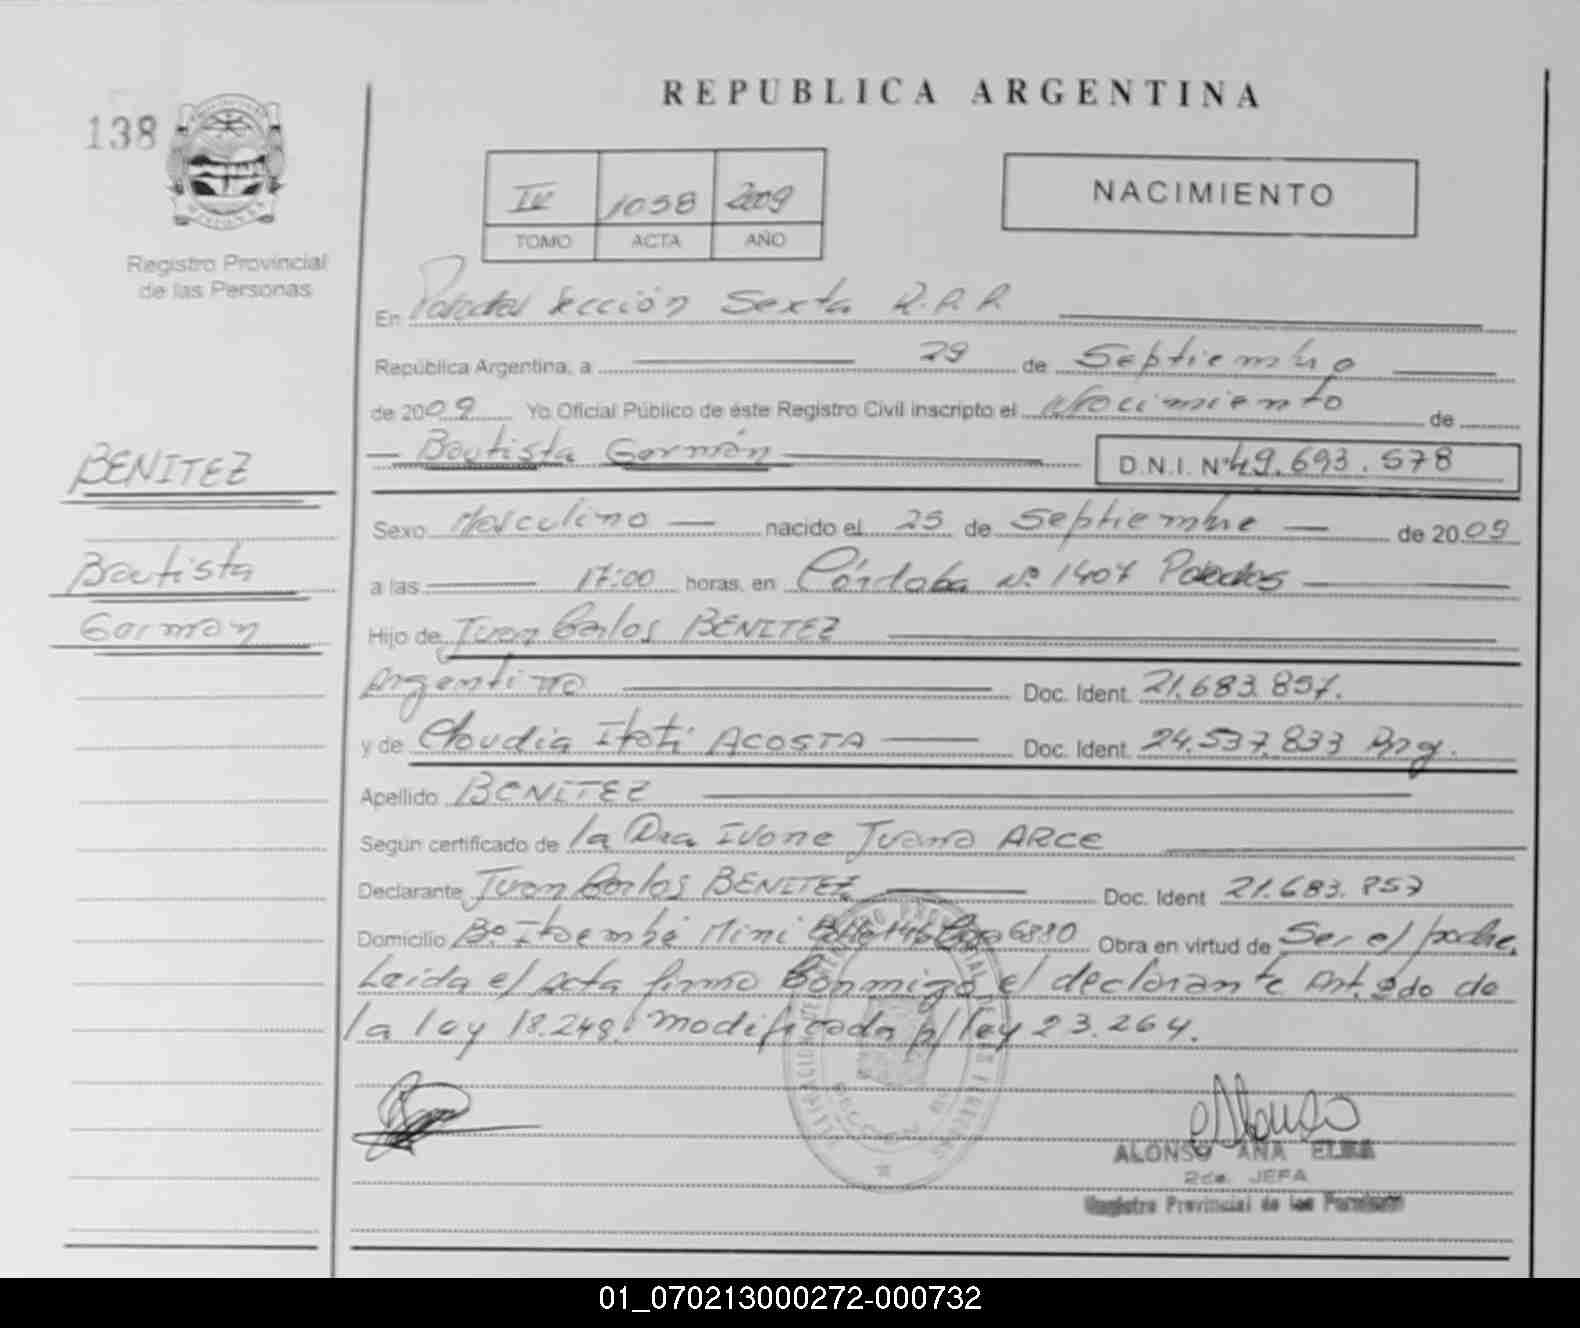 REPUBLICA ARGENTINA
138
IV 1058 2009
TOMO ACTA AÑO
NACIMIENTO
Registro Provincial
de las Personas
En Posadas Sección Sexta R.P.P.
República Argentina, a 29 de Septiembre
de 2009 Yo Oficial Público de éste Registro Civil inscripto el Nacimiento de
Bautista Germán D.N.I. Nº 49.693.578
BENITEZ
Bautista
Germán
Sexo Masculino nacido el 25 de Septiembre de 2009
a las 17:00 horas, en Córdoba Nº 1407 Posadas
Hijo de Juan Carlos BENITEZ
Argentino Doc. Ident. 21.683.857.
y de Claudia Itatí ACOSTA Doc. Ident. 24.537.833 Arg.
Apellido BENITEZ
Según certificado de la Dra Ivone Juana ARCE
Declarante Juan Carlos BENITEZ Doc. Ident 21.683.857
Domicilio Bº Itaembé Mini 6880 Obra en virtud de Ser el padre.
Leida el acta firma Conmigo el declarante Art. 2do de
la ley 18.248. modificada p/ ley 23.264.
ALONSO ANA ELBA
2da. JEFA
Registro Provincial de las Personas
01_070213000272-000732